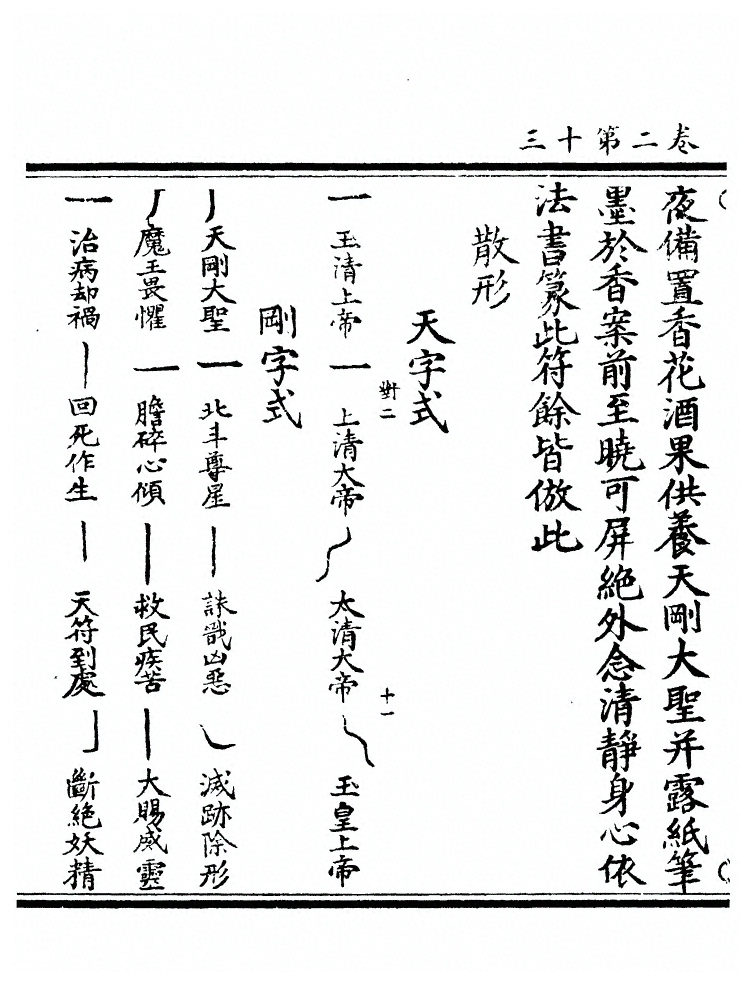 卷二第十三
夜備置香花酒果供養天剛大聖并露紙筆
墨於香案前至曉可屏絕外念清靜身心依
法書篆此符餘皆倣此
散形
天字式
對二 十一
玉清上帝 上清大帝 太清大帝 玉皇上帝
剛字式
天剛大聖 北斗尊星 誅戮凶惡 滅跡除形
魔王畏懼 膽碎心傾 救民疾苦 大賜威靈
治病却禍 回死作生 天符到處 斷絕妖精